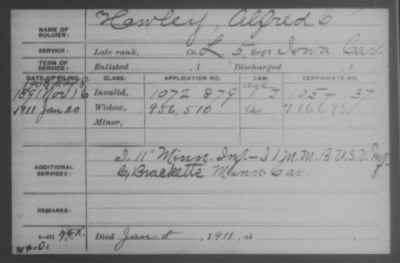 NAME OF SOLDIER: Hawley, Alfred C
SERVICE: Late rank, Co. L 5, Reg't Iowa Cav.
TERM OF SERVICE: Enlisted , 1 Discharged , 1
DATE OF FILING. CLASS. APPLICATION NO. LAW. CERTIFICATE NO.
1891 Nov 16 Invalid, 1072 879
1911 Jan 20 Widow, 956,510 a
Minor,
ADDITIONAL SERVICES: I. 11" Minn. Inf. - I 1 M. M. B. U. S. V. Inf
Co Bracketts Minn. Cav.
REMARKS:
Died Jan 8 , 1911, at